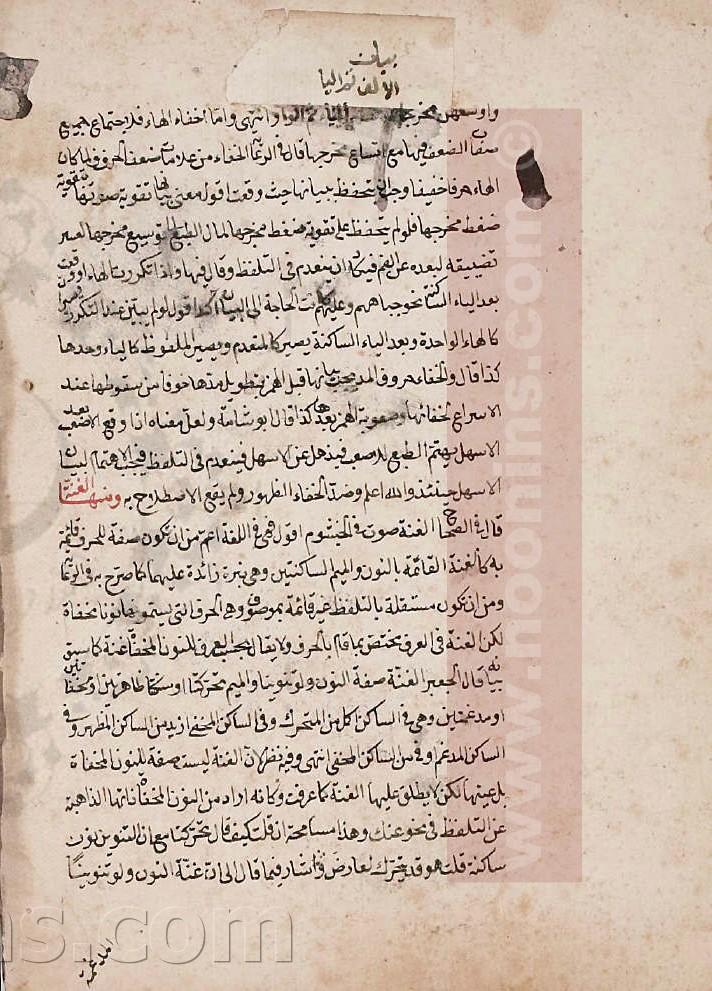 بيان
الالف ثم اليا
واوسعهن مخرجا الياء ثم الواو انتهى واما اخفاء الهاء فلاجتماع جميع
صفات الضعف فيها مع اتساع مخرجها قال في الرعاية الخفاء من علامات ضعف الحرف ولما كان
الهاء حرفا خفيفا وجب ان يتحفظ ببيانها حيث وقعت اقول معنى بيانها تقوية صوتها بتقوية
ضغط مخرجها فلو لم يتحفظ على تقوية ضغط مخرجها لمال الطبع الى توسيع مخرجها لعسر
تضييقه لبعده عن الفم فيكاد ان ينعدم في التلفظ وقال فيها واذا تكررت الهاء او وقعت
بعد الياء الساكنة نحو جباههم وعليهم كانت الحاجة الى البيان آكد اقول لو لم يبين عند التكرر
كالهاء الواحدة وبعد الياء الساكنة يصير كالمنعدم ويصير الملفوظ كالياء وحدها
كذا قال ولخفاء حروف المد يجب بيانها قبل الهمز بتطويل مدها خوفا من سقوطها عند
الاسراع لخفائها وصعوبة الهمز بعدها كذا قال ابو شامة ولعل معناه اذا وقع الاصعب بعد
الاسهل يهتم الطبع للاصعب فيذهل عن الاسهل فينعدم في التلفظ فيجب الاهتمام لبيان
الاسهل حينئذ والله اعلم وضد الخفاء الظهور ولم يقع الاصطلاح به ومنها الغنة
قال في الصحاح الغنة صوت في الخيشوم اقول فهي في اللغة اعم من ان تكون صفة للحرف قائمة
به كالغنة القائمة بالنون والميم الساكنتين وهي نبرة زائدة عليهما كما صرح به في الرعاية
ومن ان تكون مستقلة بالتلفظ غير قائمة بموصوف وهي الحرف التي يسمونها نونا مخفاة
لكن الغنة في العرف يختص بما قام بالحرف ولا يقال بحسب العرف للنون المخفاة غنة كما سبق
بيانه قال الجعبري الغنة صفة النون ولو تنوينا والميم تحركتا او سكنتا ظاهرتين او مخفاتين
او مدغمتين وهي في الساكن اكمل من المتحرك وفي الساكن المخفي ازيد من الساكن المظهر وفي
الساكن المدغم اوفى من الساكن المخفي انتهى وفيه نظر لان الغنة ليست صفة للنون المخفاة
بل عينها لكن لا يطلق عليها الغنة كما عرفت وكانه اراد من النون المخفاة ذاتها الذاهبة
عن التلفظ في نحو عنك وهذا مسامحة ان قلت كيف قال تحركتا مع ان التنوين نون
ساكنة قلت هو قد يتحرك لعارض واشار فيما قال الى ان غنة النون ولو تنوينا
المدغمة
www.noonins.com ©
ns.com